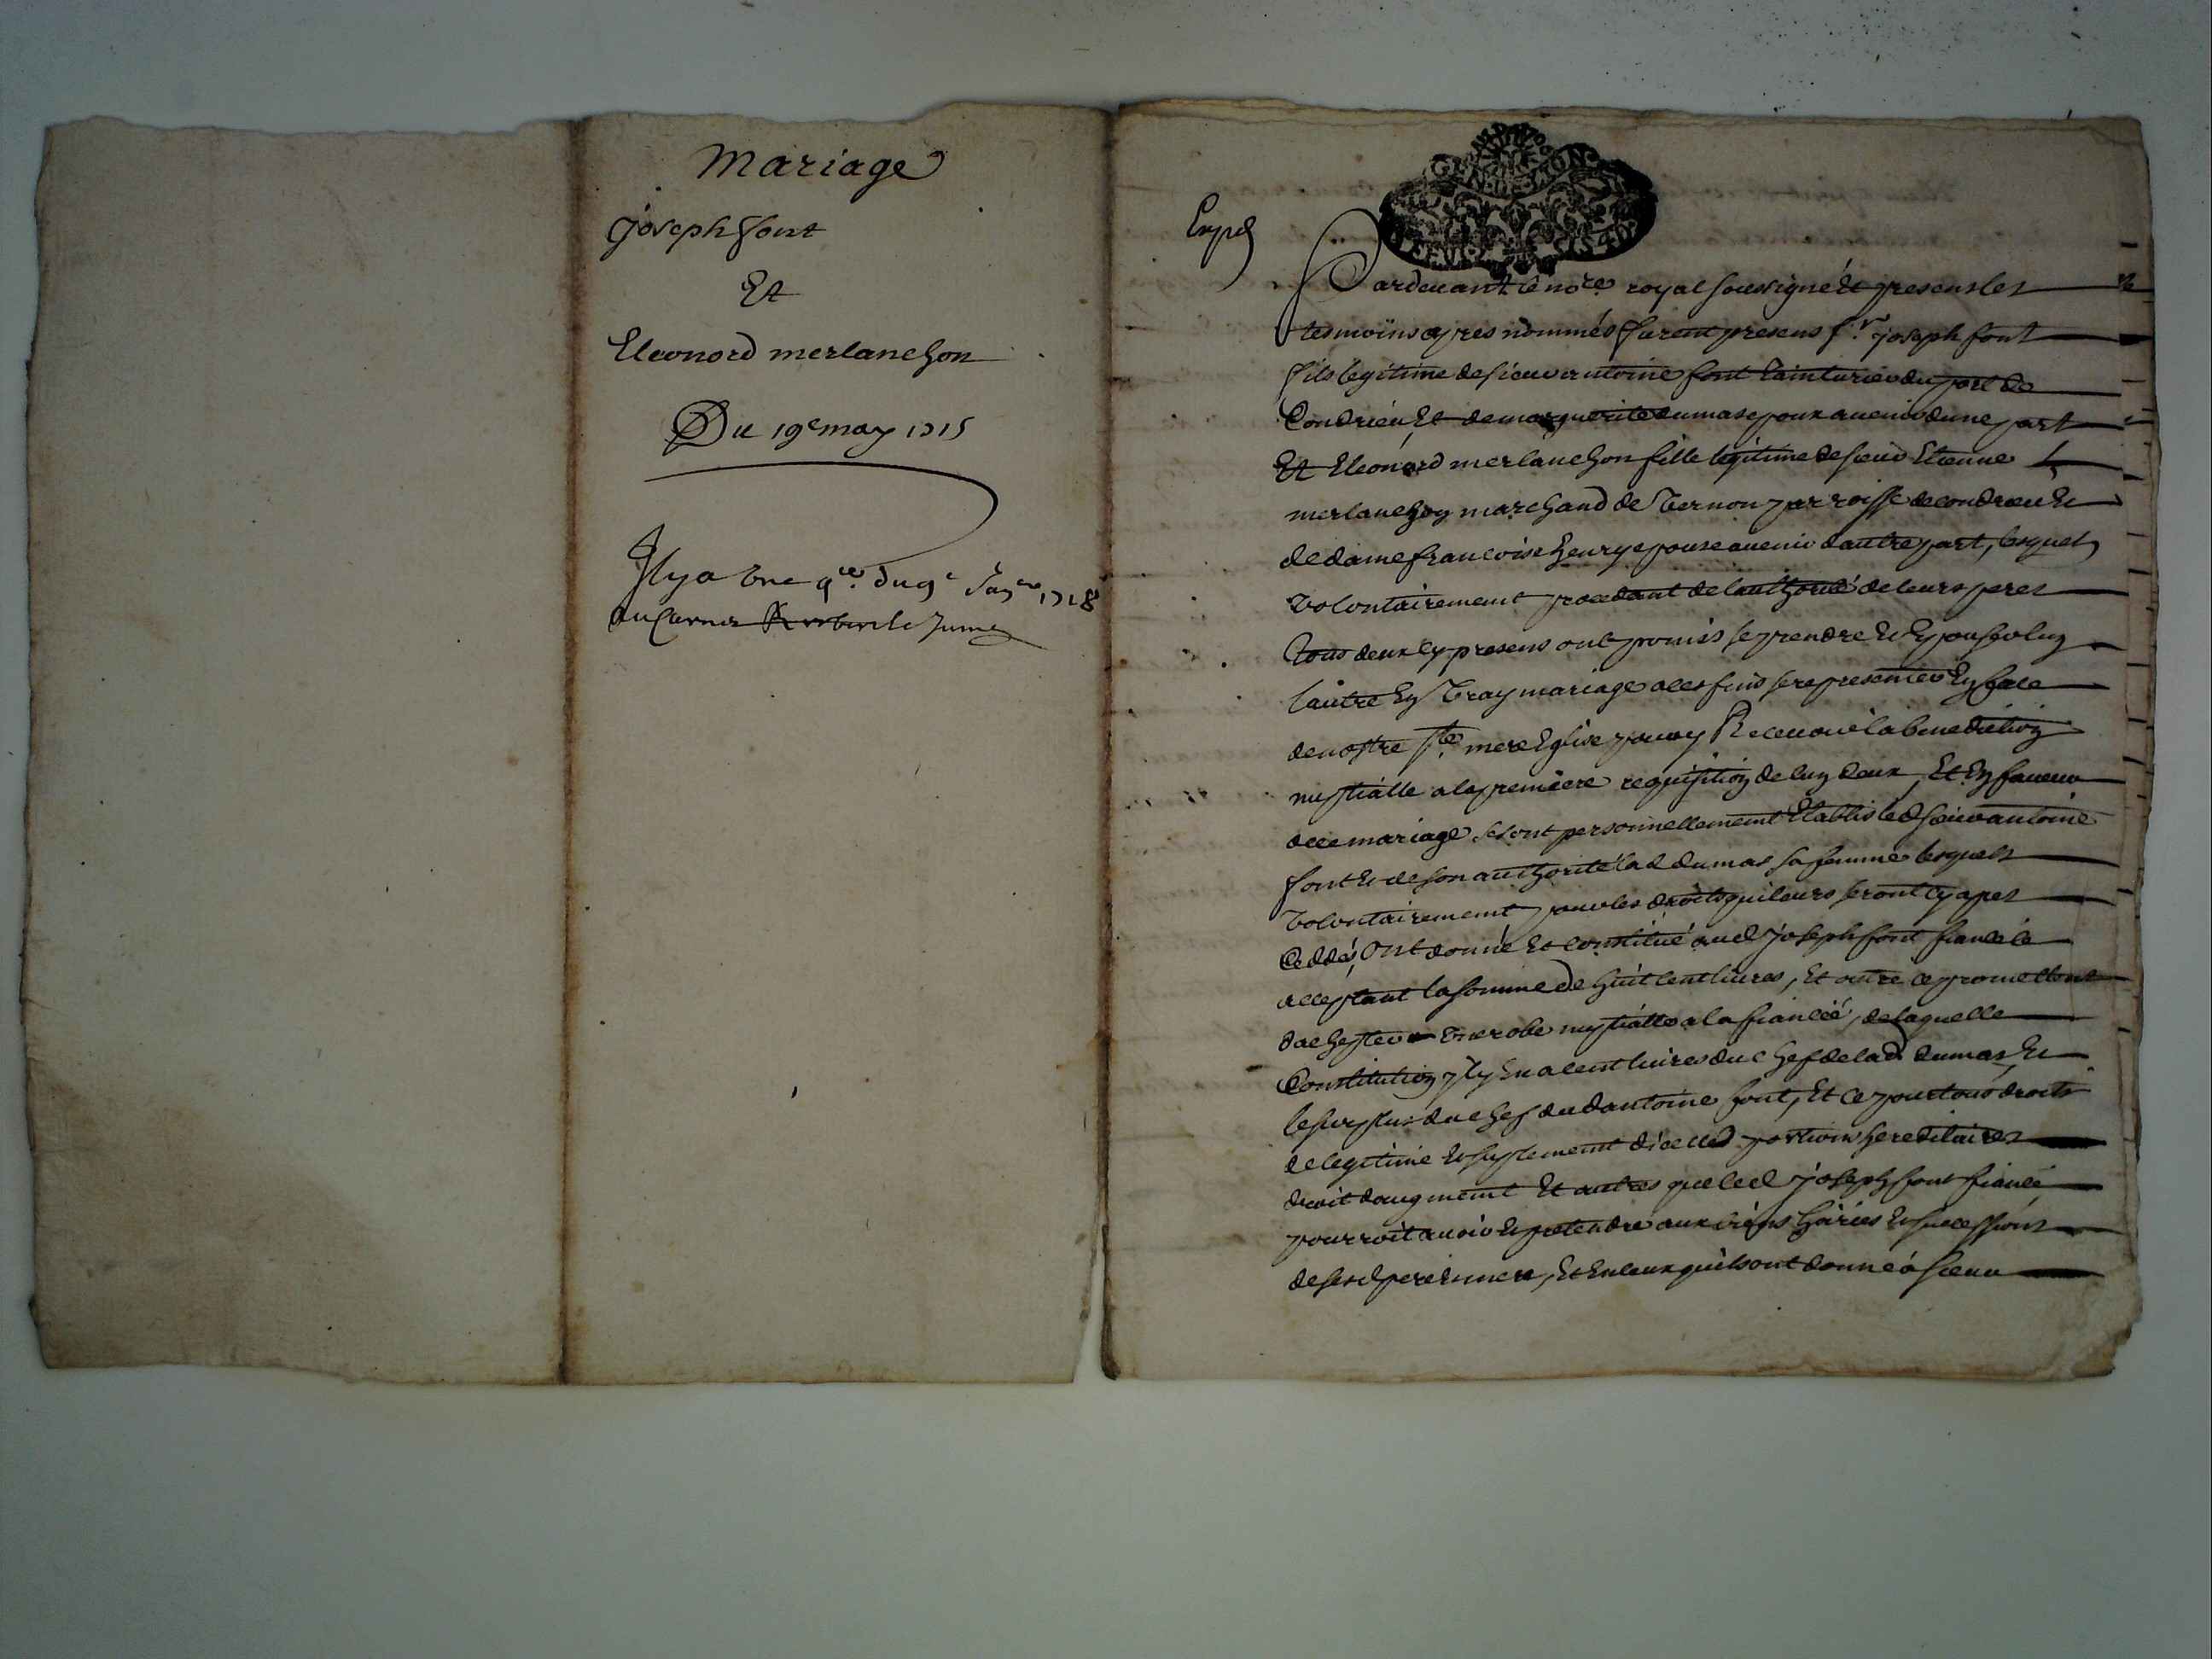 Mariage
joseph font
Et
Eleonord merlanchon
Du 19e may 1715
Il y a une qce. du 9e Janer 1718
au
Expé
GENERATION
Pardevant le nore. royal soussigné Et presens les
tesmoins apres nommés furent presens sr. joseph font
fils legitime de sieur antoine font tainturier du port de
Condrieu Et de marguerite dumas epoux avenir dune part
Et Eleonord merlanchon fille legitime de sieur Etienne
merlanchon marchand de Vernon parroisse de condrieu Et
de dame francoise henry epouse avenir dautre part, lesquels
Volontairement procedant de lauthorité de leurs peres
Tous deux cy presens ont promis se prendre Et Epouser lun
lautre En Vray mariage a ces fins se representer En face
de nostre ste. mere Eglise pour y Recevoir la benediction
nuptialle a la premiere requisition de lun deux, Et En faveur
de ce mariage se sont personnellement Etablis led sieur antoine
font Et de son authorité lad dumas sa femme lesquels
Volontairement pour les droits qui leurs seront cy apres
Ceddés, Ont donné Et constitué aud joseph font fiancé le
acceptant la somme de huit cent livres, Et outre ce promettent
dachepter Une robe nuptialle a la fiancée, de laquelle
Constitution Il y En a cent livres du chef de lad dumas Et
le surplus du chef dud antoine font, Et ce pour tous droits
de legitime Et suplement dicelled portions hereditaires
droit daugment Et autres que led joseph font fiancé
pourroit avoir Et pretendre aux biens hoiries Et successions
de sesd pere Et mere, Et En ceux quils ont donné à sieur